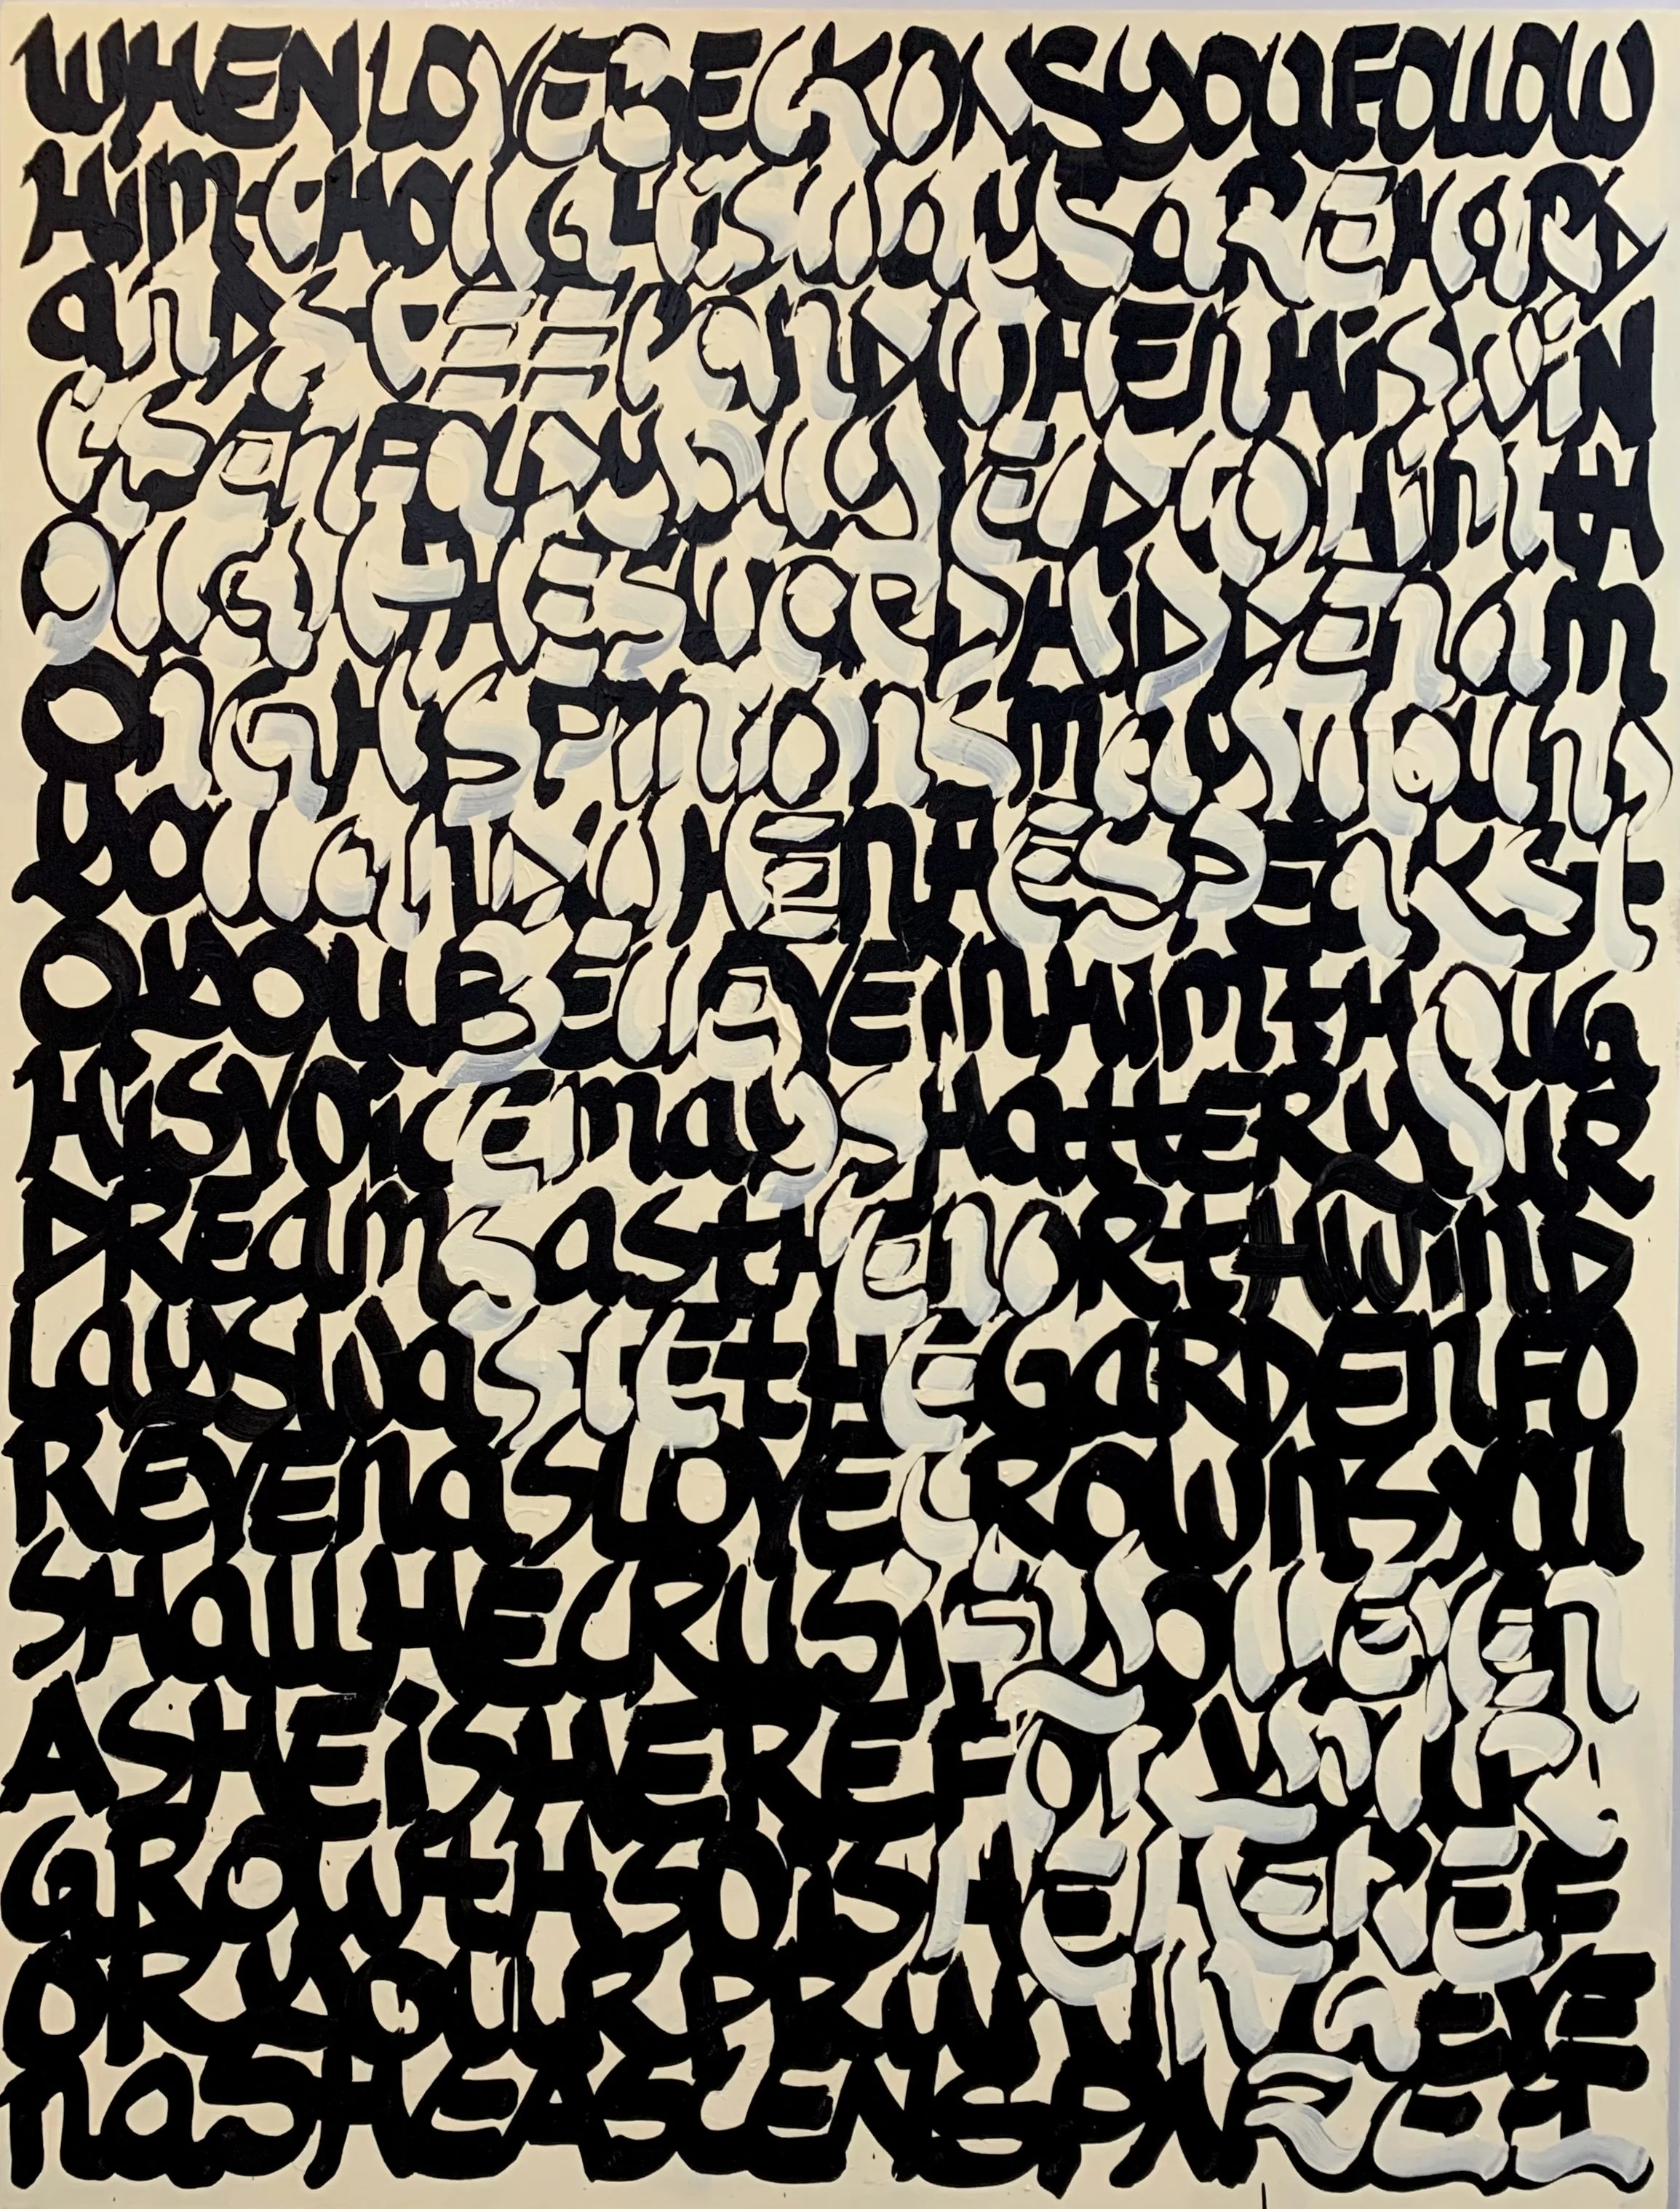 WHENLOVEBECKONSyOUFOllOW
HimtHOUGHisWaySaREHaRD
anDStEEPanDWHENHiSWiN
GSEnFOLDyOUyiELDtOHimtH
OUGHtHESWORDHiDDEnam
OnGHiSPiniONSmayWOUnD
yOUanDWHEnHESPEaKSt
OyOUBEliEVEinHimtHOUG
HiSVOiCEmaySHattERyOUR
DREamSaStHEnORtHWinD
LaySWaStEtHEGaRDEnFO
REVEnaSLOVECROWnSyOU
SHallHECRUSiFyyOUEVEn
ASHEiSHEREFORyOUR
GROWtHSOiSHEHEREF
ORyOURPRUNiNGEVE
naSHEASCENDS